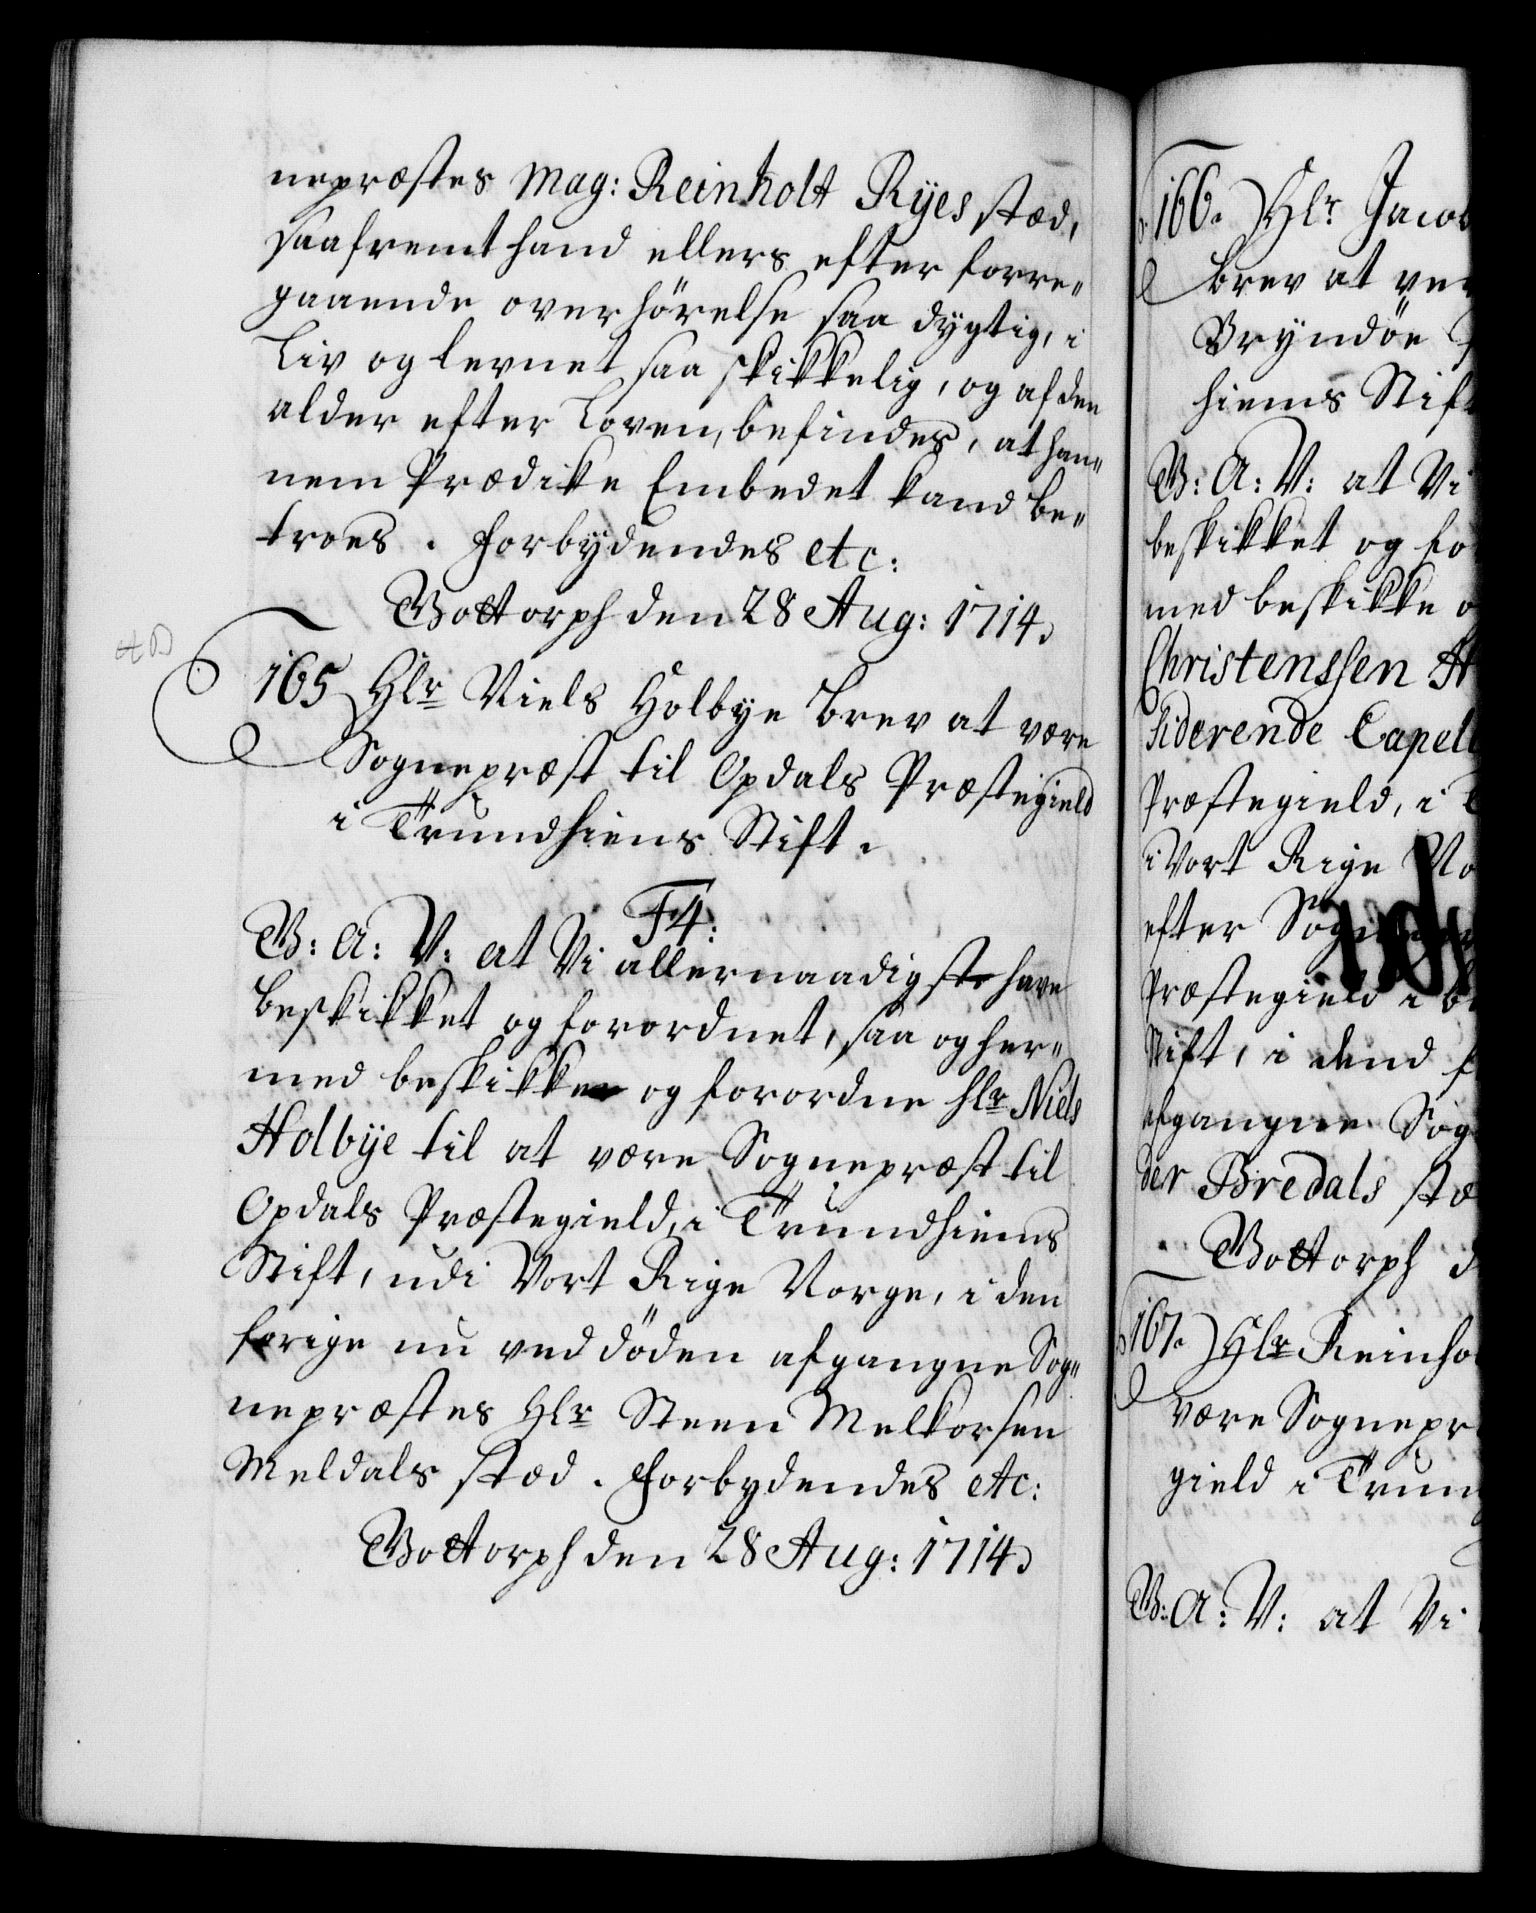 nepræstes Mag: Reinholt Ryes stæd,
saafremt hand ellers efter forre„
gaaende overhörelse saa dygtig, i
Liv og levnet saa skikkelig, og af den
alder efter Loven, befindes, at han„
nem Prædike Embedet kand be„
troes. Forbydendes etc:
Gottorph den 28 Aug: 1714.
165 Hlr Niels Holbye brev at være
Sognepræst til Opdals Præstegield
i Trundhiems Stift.
F4:
G: A: V: at Vi allernaadigst have
beskikket og forordnet, saa og her„
med beskikke og forordne hlr Niels
Holbye til at være Sognepræst til
Opdals Præstegield, i Trundhiems
Stift, udi Vort Rige Norge, i den
forige nu ved döden afgangne Sog„
nepræstes Hlr Steen Melkorsen
Meldals stæd. Forbydendes etc:
Gottorph den 28 Aug: 1714.
166. Hlr Jacob
brev at være
Bryndöe
hiems Stift
G: A: V: at Vi
beskikket og for
med beskikke o
Christenssen H
siderende Capell
Præstegield, i T
i Vort Rige No
efter Sogne
Præstegield i be
Stift, i dend f
afgangne Sog
der Bredals stæ
Gottorph d
167. Hlr Reinho
være Sognepr
gield i Trun
G: A: V: at Vi